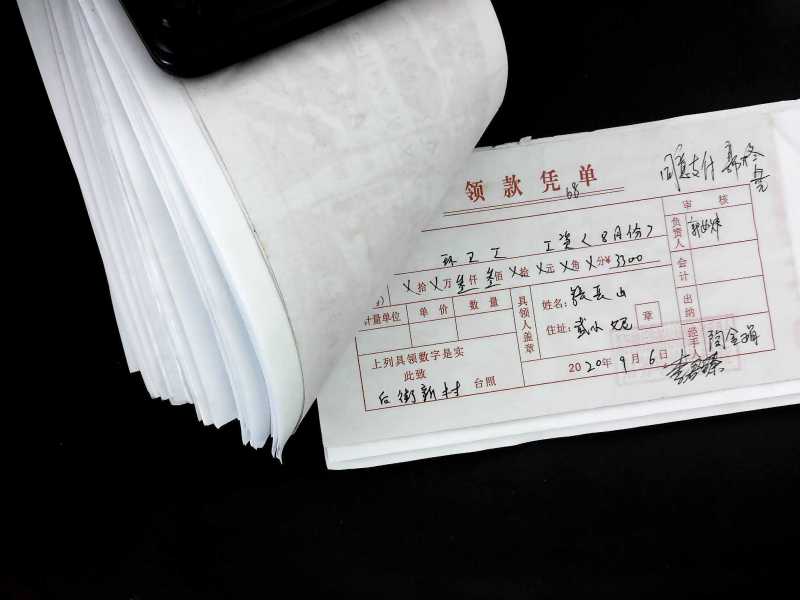 领款凭单
68
同意支付
审核
环卫工 工资（8月份）
负责人
X拾X万叁仟叁佰X拾X元X角X分¥3300
会计
计量单位 单价 数量
具领人盖章
姓名：张长山
出纳
住址：
章
经手人
上列具领数字是实
此致
后街新村 台照
2020年9月6日